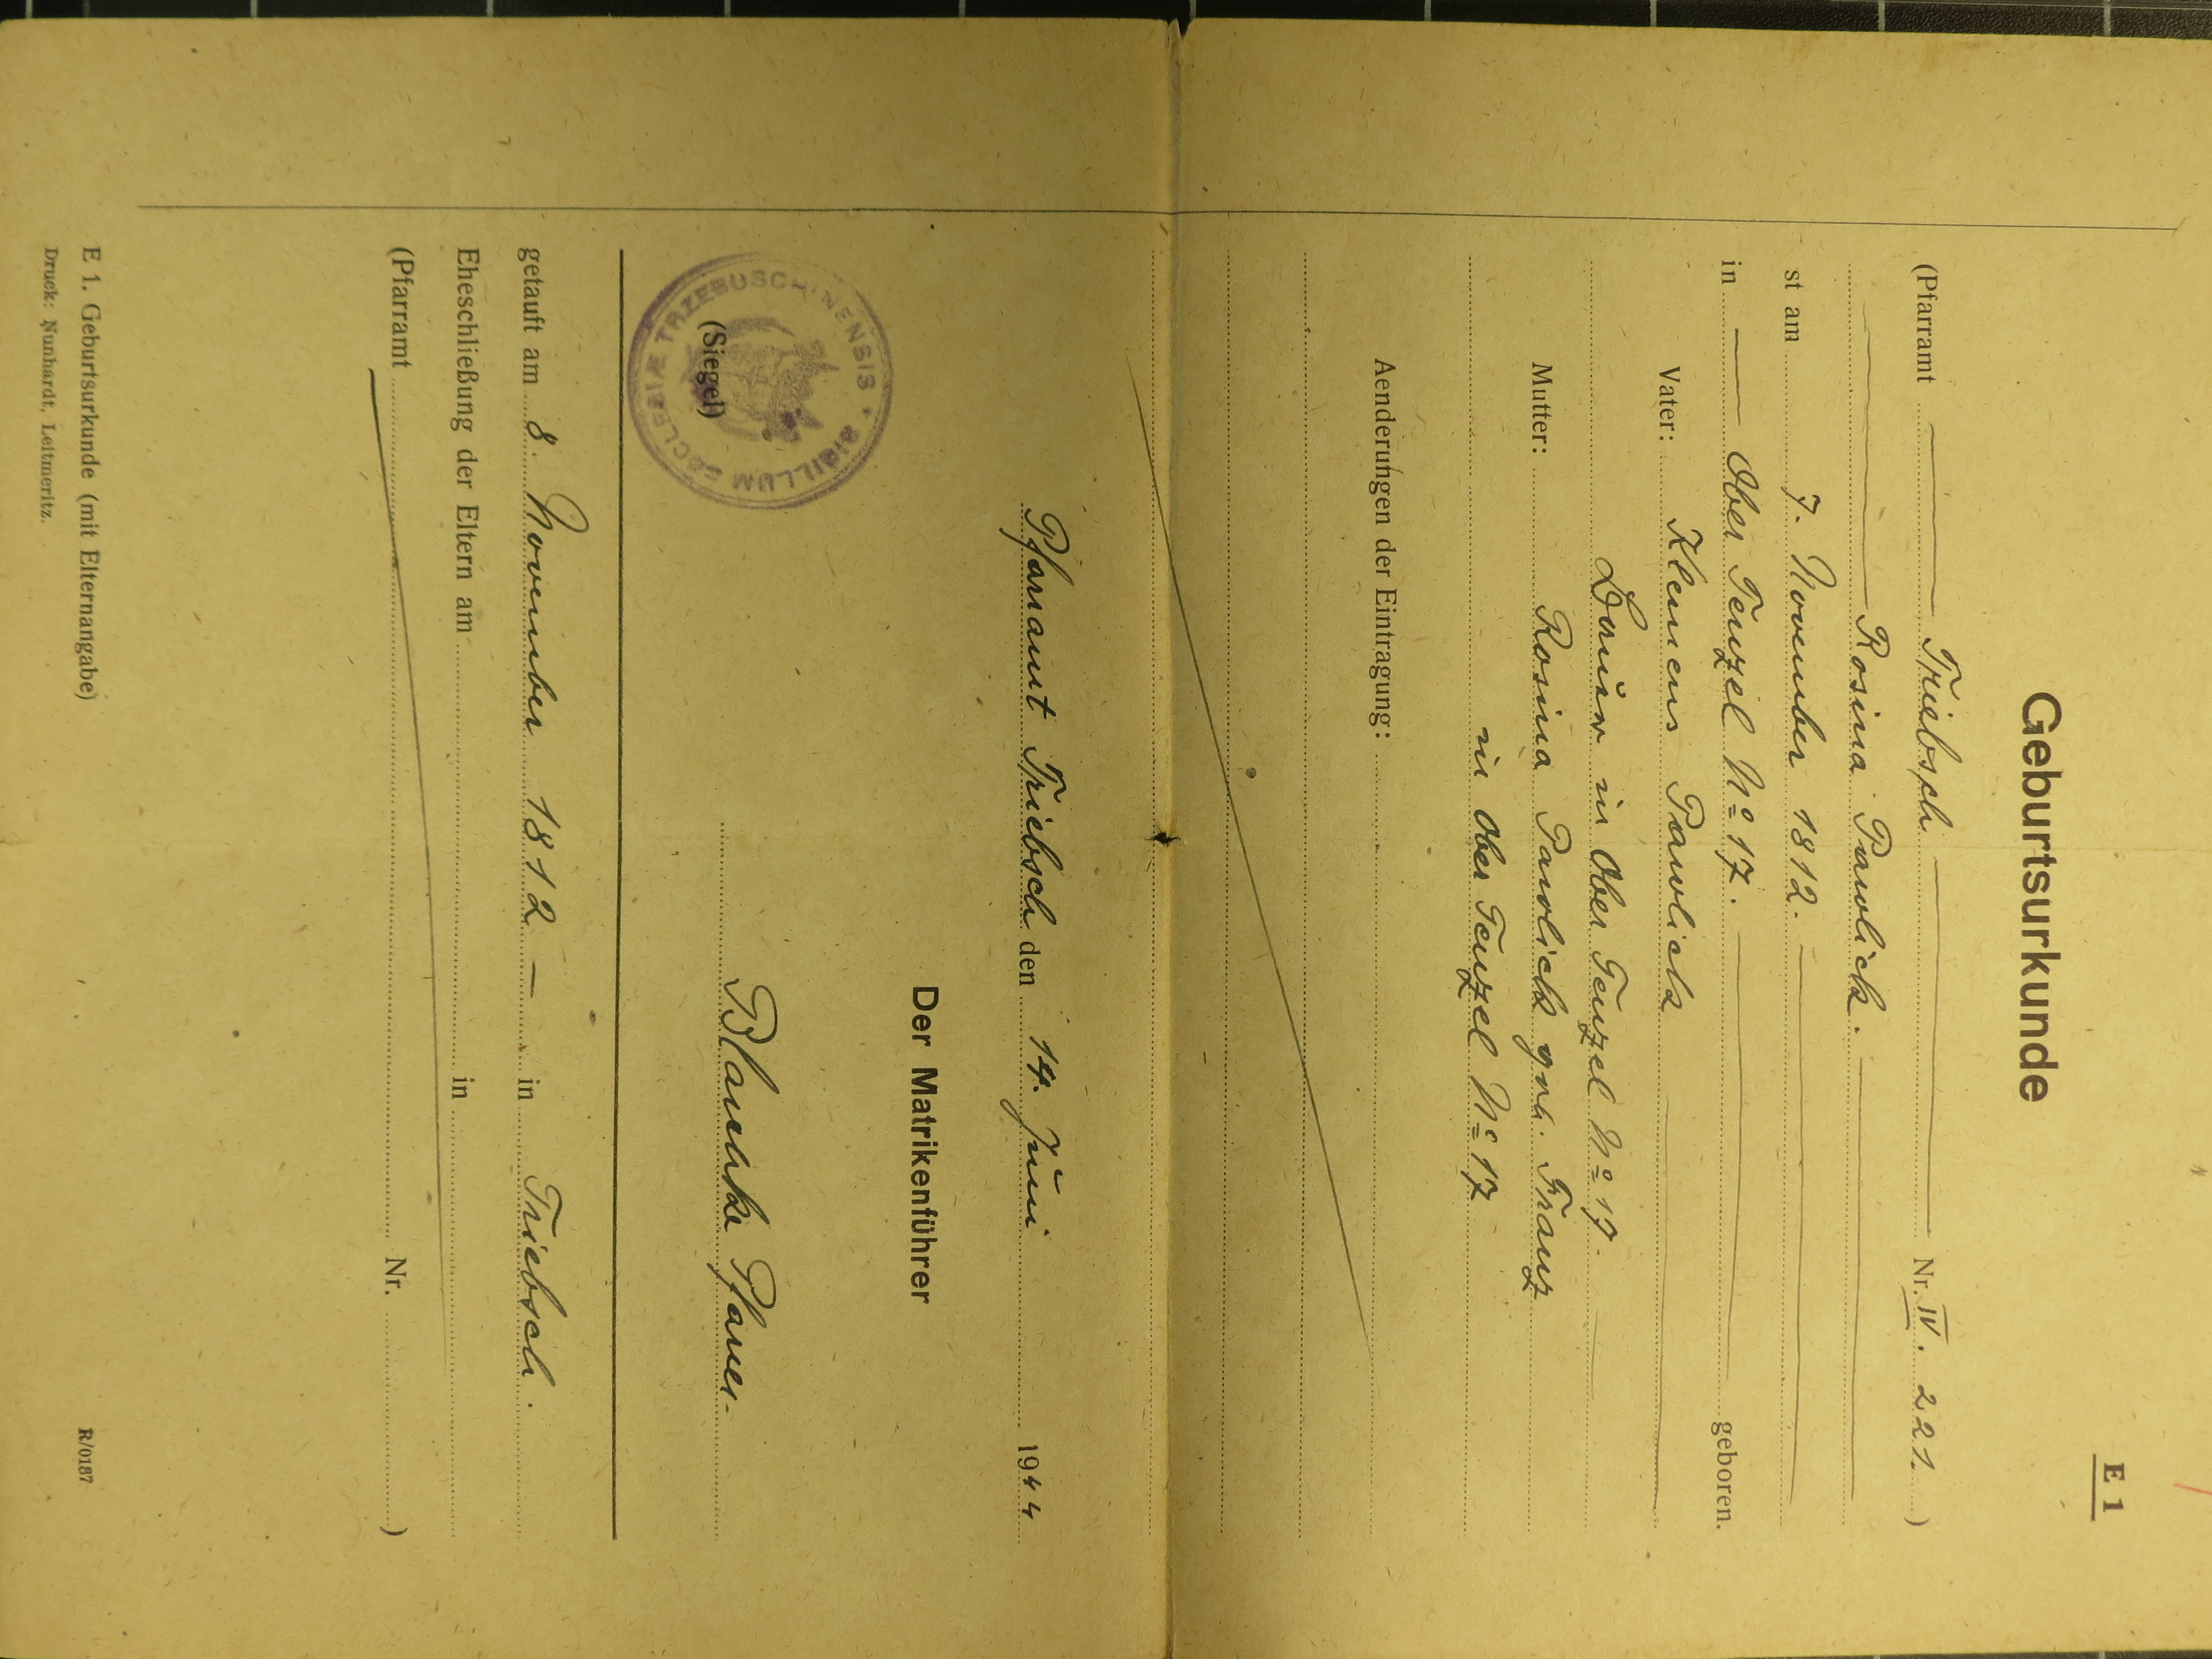 E 1
Geburtsurkunde
(Pfarramt Triebsch Nr. IV. 221. )
Rosina Pawlick.
st am 7. November 1812.
in Ober Tenzel No 17. geboren.
Vater: Klemens Pawlick
Bauer in Ober Tenzel No 17.
Mutter: Rosina Pawlick geb. Franz
in Ober Tenzel No 17
Aenderungen der Eintragung:
Pfarramt Triebsch den 14. Juni 1944
Der Matrikenführer
SIGILLUM ECCLESIÆ TRZEBUSCHINENSIS
(Siegel)
Blaschke Pfarrer.
getauft am 8. November 1812 — in Triebsch.
Eheschließung der Eltern am in
(Pfarramt Nr. )
E 1. Geburtsurkunde (mit Elternangabe)
R/0187
Druck: Nunhardt, Leitmeritz.